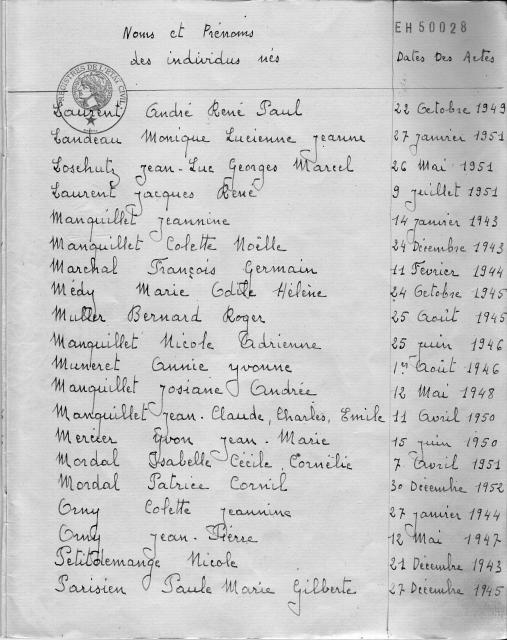 EH50028
Noms et Prénoms
des individus nés
Dates Des Actes
REGISTRES DE L'ETAT CIVIL
Laurent André René Paul 22 Octobre 1949
Landeau Monique Lucienne Jeanne 27 janvier 1951
Loschutz Jean-Luc Georges Marcel 26 Mai 1951
Laurent Jacques René 9 juillet 1951
Manquillet Jeannine 14 janvier 1943
Manquillet Colette Noëlle 24 Décembre 1943
Marchal François Germain 11 Février 1944
Médy Marie Odile Hélène 24 Octobre 1945
Muller Bernard Roger 25 Août 1945
Manquillet Nicole Adrienne 25 juin 1946
Muneret Annie Yvonne 1er Août 1946
Manquillet Josiane Andrée 12 Mai 1948
Manquillet Jean-Claude, Charles, Emile 11 Avril 1950
Mercier Yvon Jean-Marie 15 juin 1950
Mordal Isabelle Cécile Cornélie 7 Avril 1951
Mordal Patrice Cornil 30 Décembre 1952
Orny Colette Jeannine 27 janvier 1944
Orny Jean-Pierre 12 Mai 1947
Petitdemange Nicole 21 Décembre 1943
Parisien Paule Marie Gilberte 27 Décembre 1945